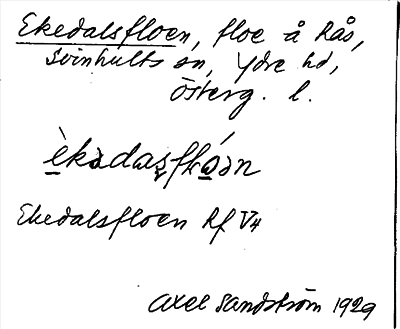 Ekedalsfloen, floe å Rås,
Svinhults sn, Ydre hd,
Österg. l.
Ekedalsfloen Rf V4
Axel Sandström 1929